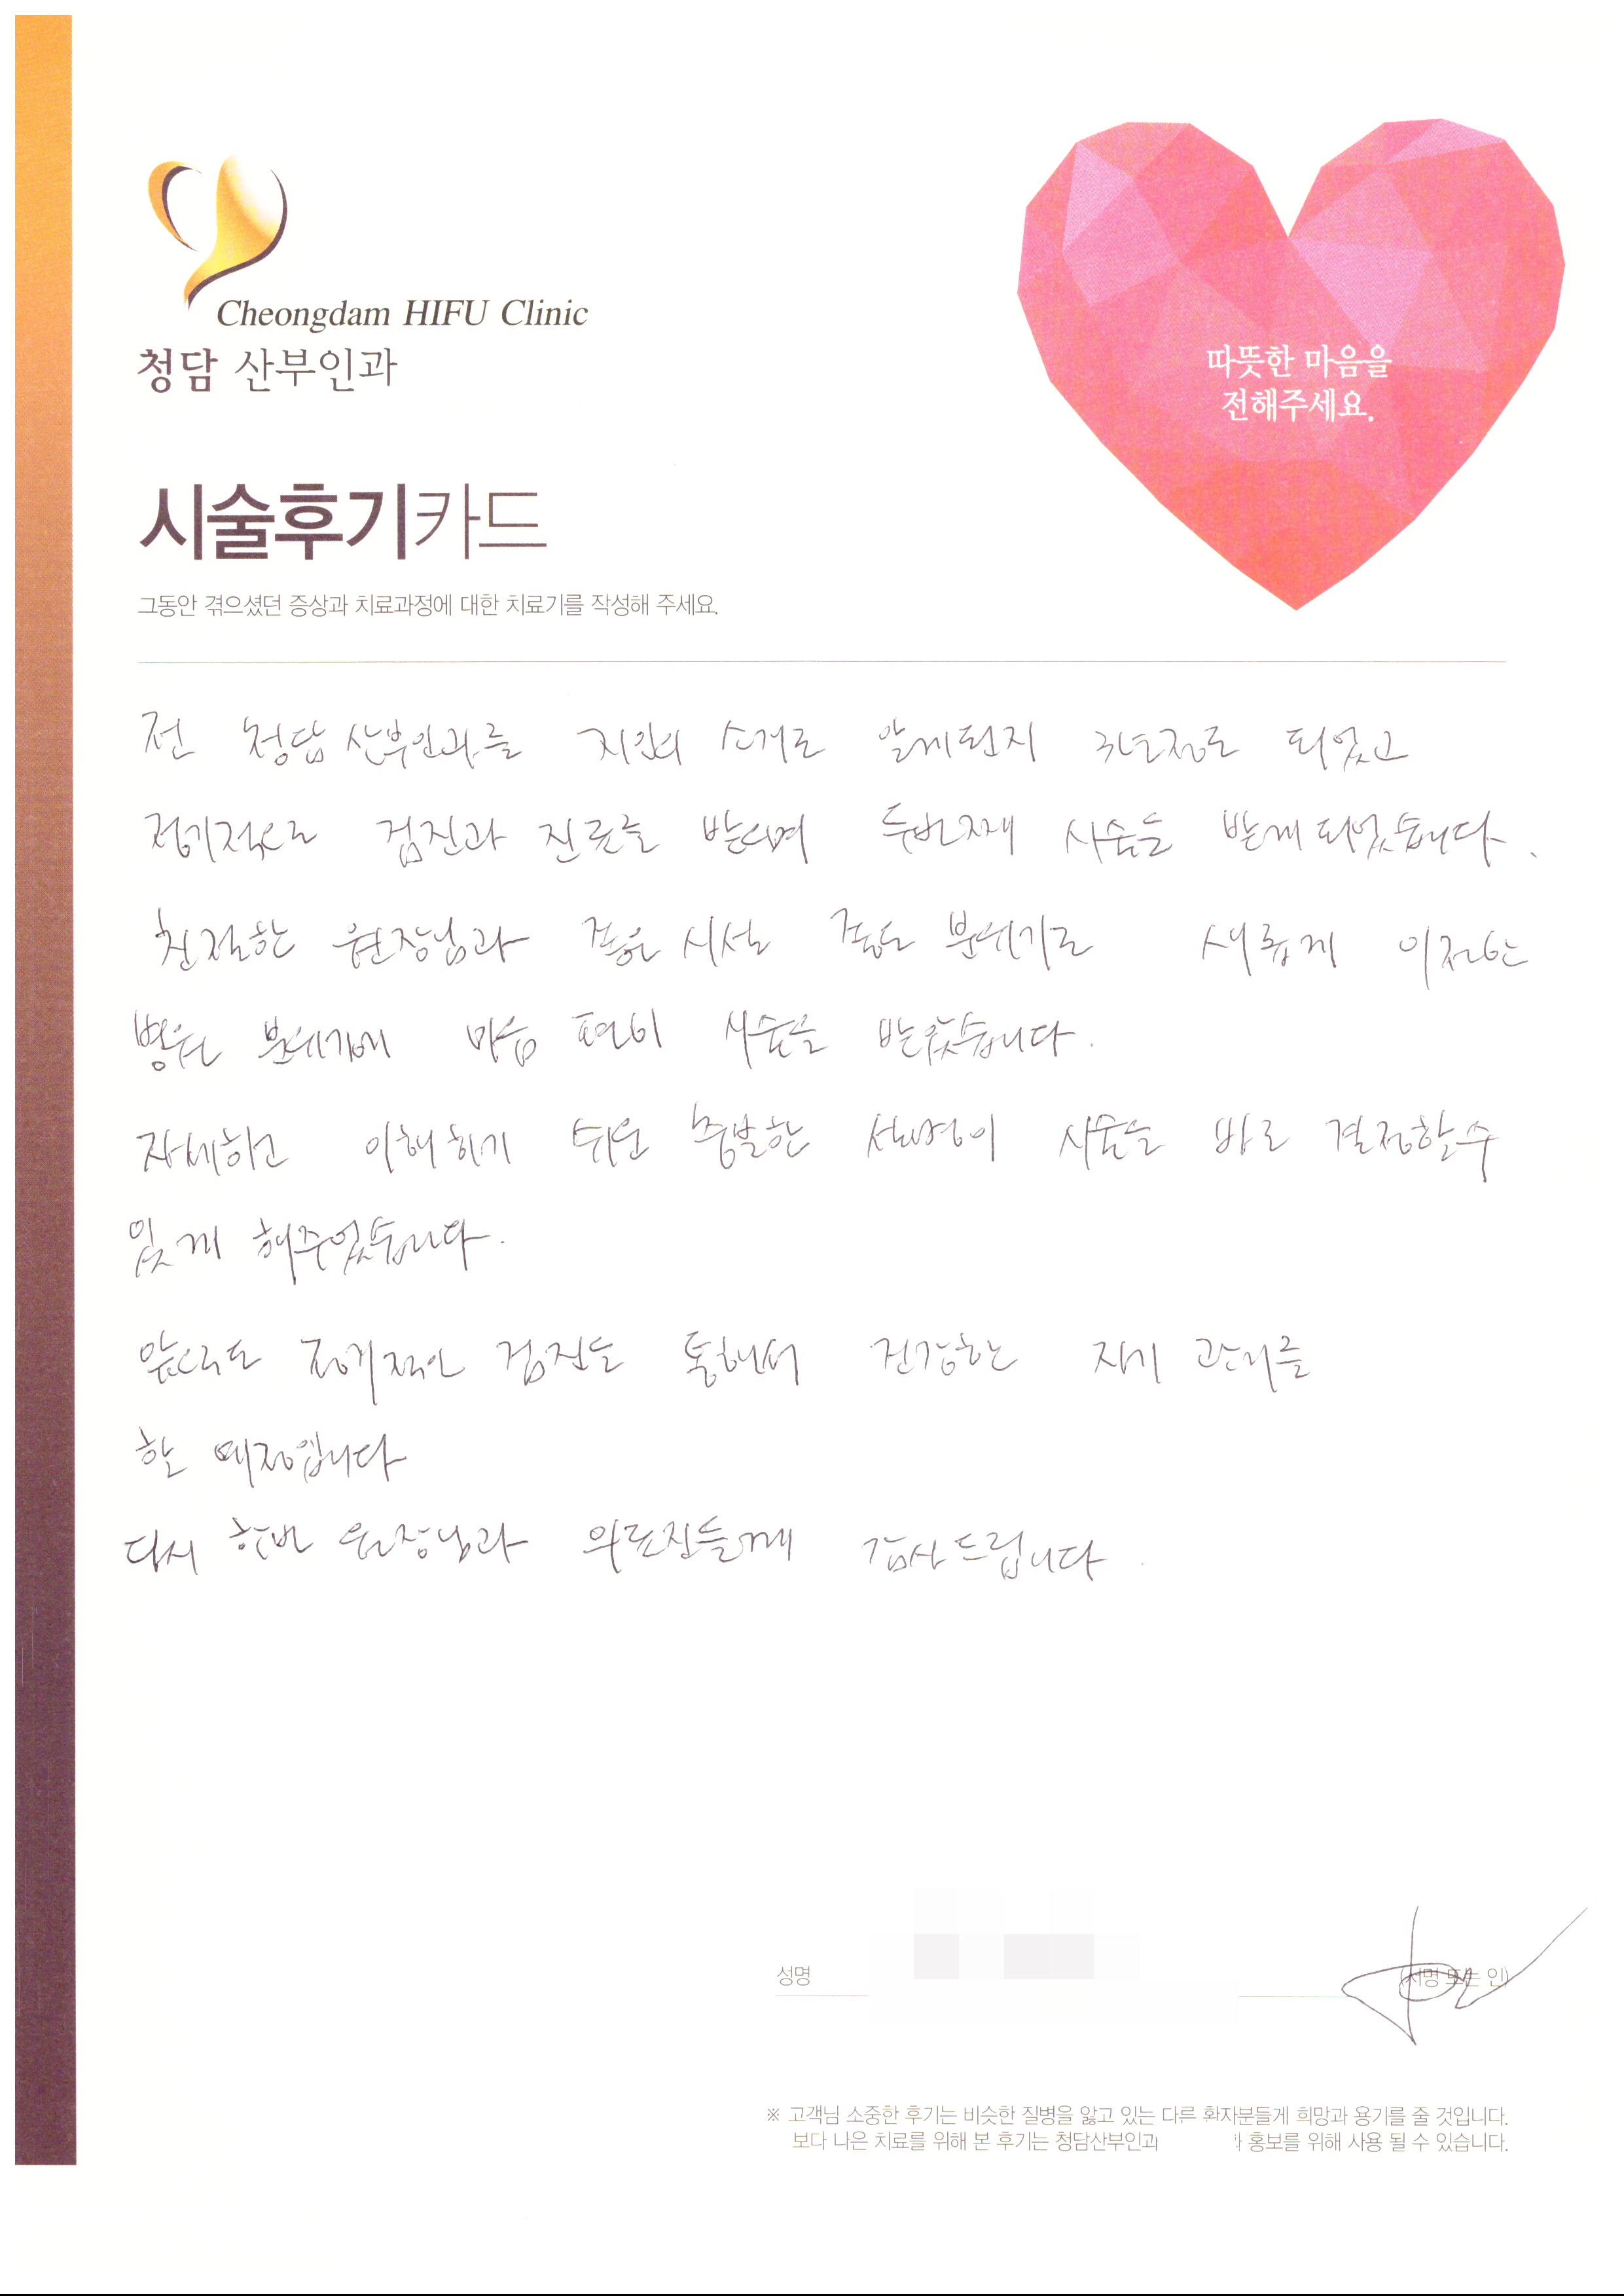 Cheongdam HIFU Clinic
청담 산부인과
따뜻한 마음을
전해주세요.
시술후기카드
그동안 겪으셨던 증상과 치료과정에 대한 치료기를 작성해 주세요.
전 청담산부인과를 지인의 소개로 알게된지 3년정도 되었고
정기적으로 검진과 진료를 받으며 두번째 시술을 받게 되었습니다.
친절한 원장님과 좋은 시설 좋은 분위기로 새롭게 이전한
병원 분위기에 마음 편히 시술을 받았습니다.
자세하고 이해하기 쉬운 충분한 설명이 시술을 바로 결정할수
있게 해주었습니다.
앞으로도 정기적인 검진을 통해서 건강한 자기 관리를
할 예정입니다
다시 한번 원장님과 의료진들께 감사드립니다.
성명
(서명 또는 인)
※ 고객님 소중한 후기는 비슷한 질병을 앓고 있는 다른 환자분들게 희망과 용기를 줄 것입니다.
보다 나은 치료를 위해 본 후기는 청담산부인과 홍보를 위해 사용 될 수 있습니다.